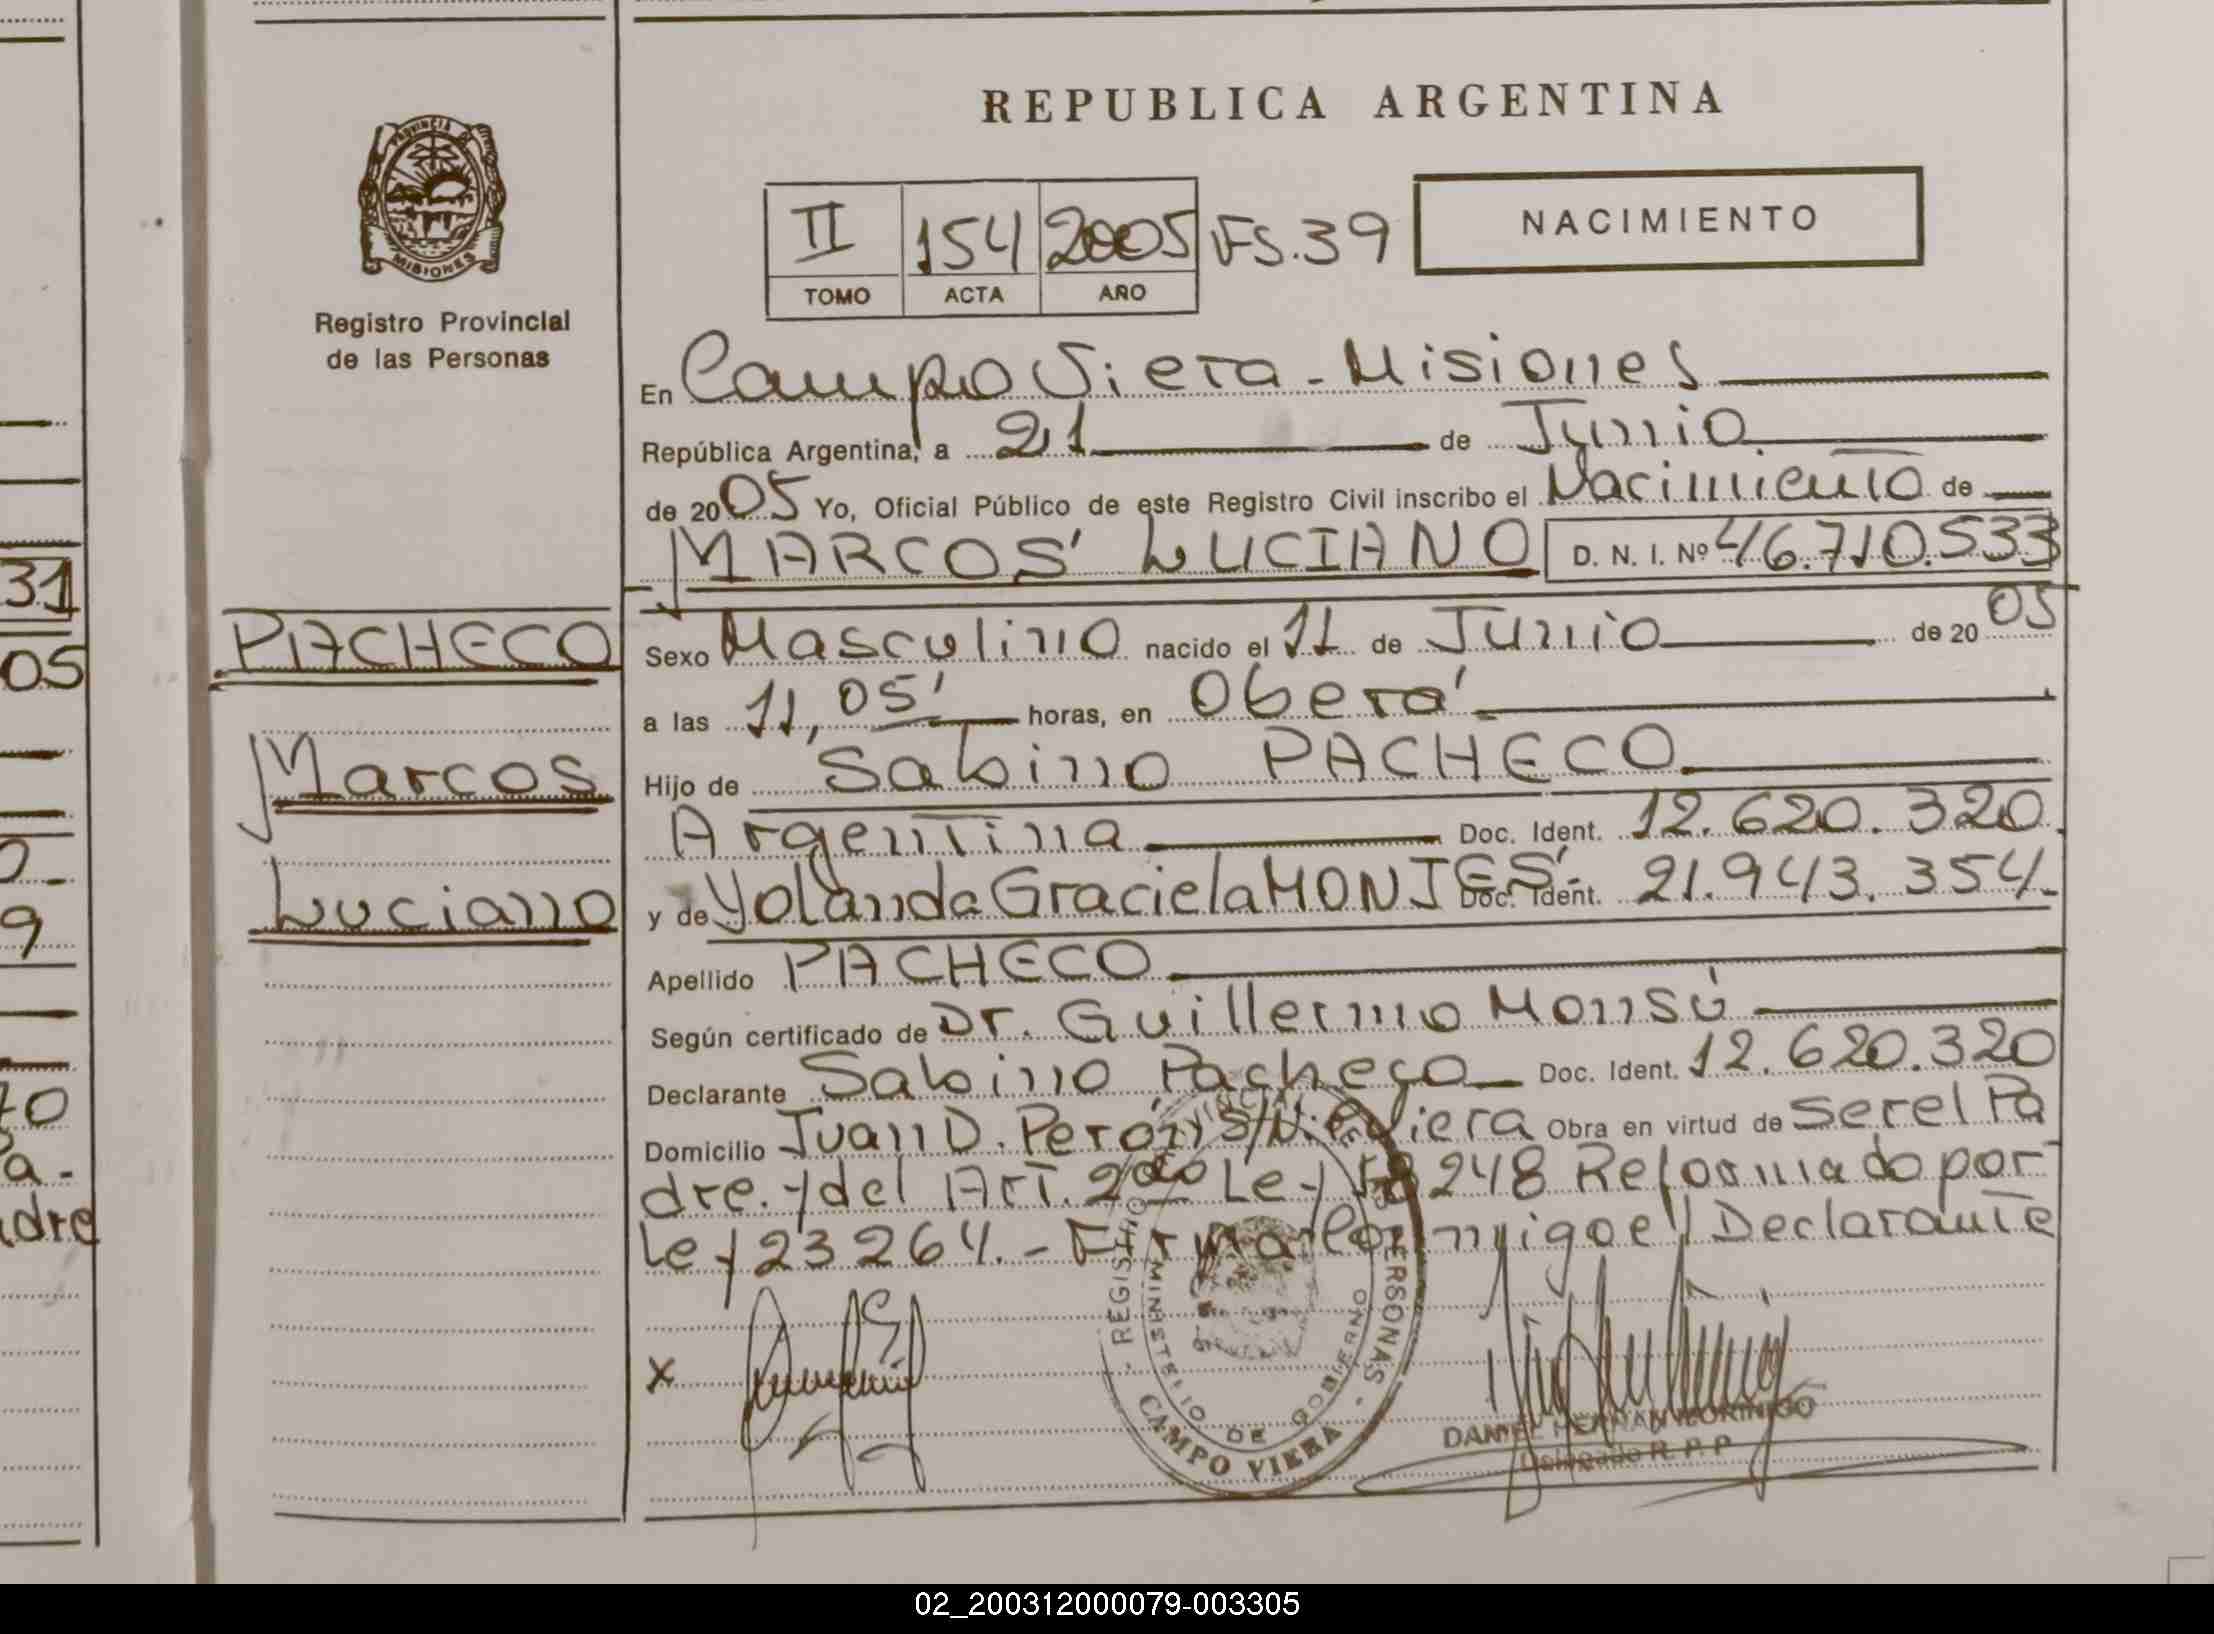 REPUBLICA ARGENTINA
PROVINCIA DE
MISIONES
Registro Provincial
de las Personas
II 154 2005 FS.39
TOMO ACTA AÑO
NACIMIENTO
En Campo Viera - Misiones
República Argentina, a 21 de Junio
de 2005 Yo, Oficial Público de este Registro Civil inscribo el Nacimiento de
MARCOS LUCIANO D. N. I. Nº 46.710.533
PACHECO
Marcos
Luciano
Sexo Masculino nacido el 11 de Junio de 2005
a las 11,05' horas, en Oberá
Hijo de Sabino PACHECO
Argentina Doc. Ident. 12.620.320
y de Yolanda Graciela MONTES Doc. Ident. 21.943.354
Apellido PACHECO
Según certificado de Dr. Guillermo Monsú
Declarante Sabino Pacheco Doc. Ident. 12.620.320
Domicilio Juan D. Perón s/N. C. Viera Obra en virtud de ser el Pa
dre. y del Art. 2do Ley 18248 Reformado por
Ley 23264. - Firman Conmigo el Declarante
x
REGISTRO PROVINCIAL DE LAS PERSONAS
MINISTERIO DE GOBIERNO
CAMPO VIERA
DANIEL HERNAN
Delegado R. P. P
31
05
9
a-
dre
02_200312000079-003305